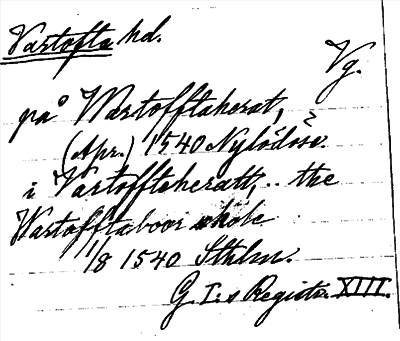 Vartofta hd.
Vg.
på Wartofftaherat,
(Apr.) 1540 Nylödöse.
i Vartofftaheratt, .. the
Wartofftaboor skole
1/8 1540 Sthlm.
G. I:s Registr. XIII.